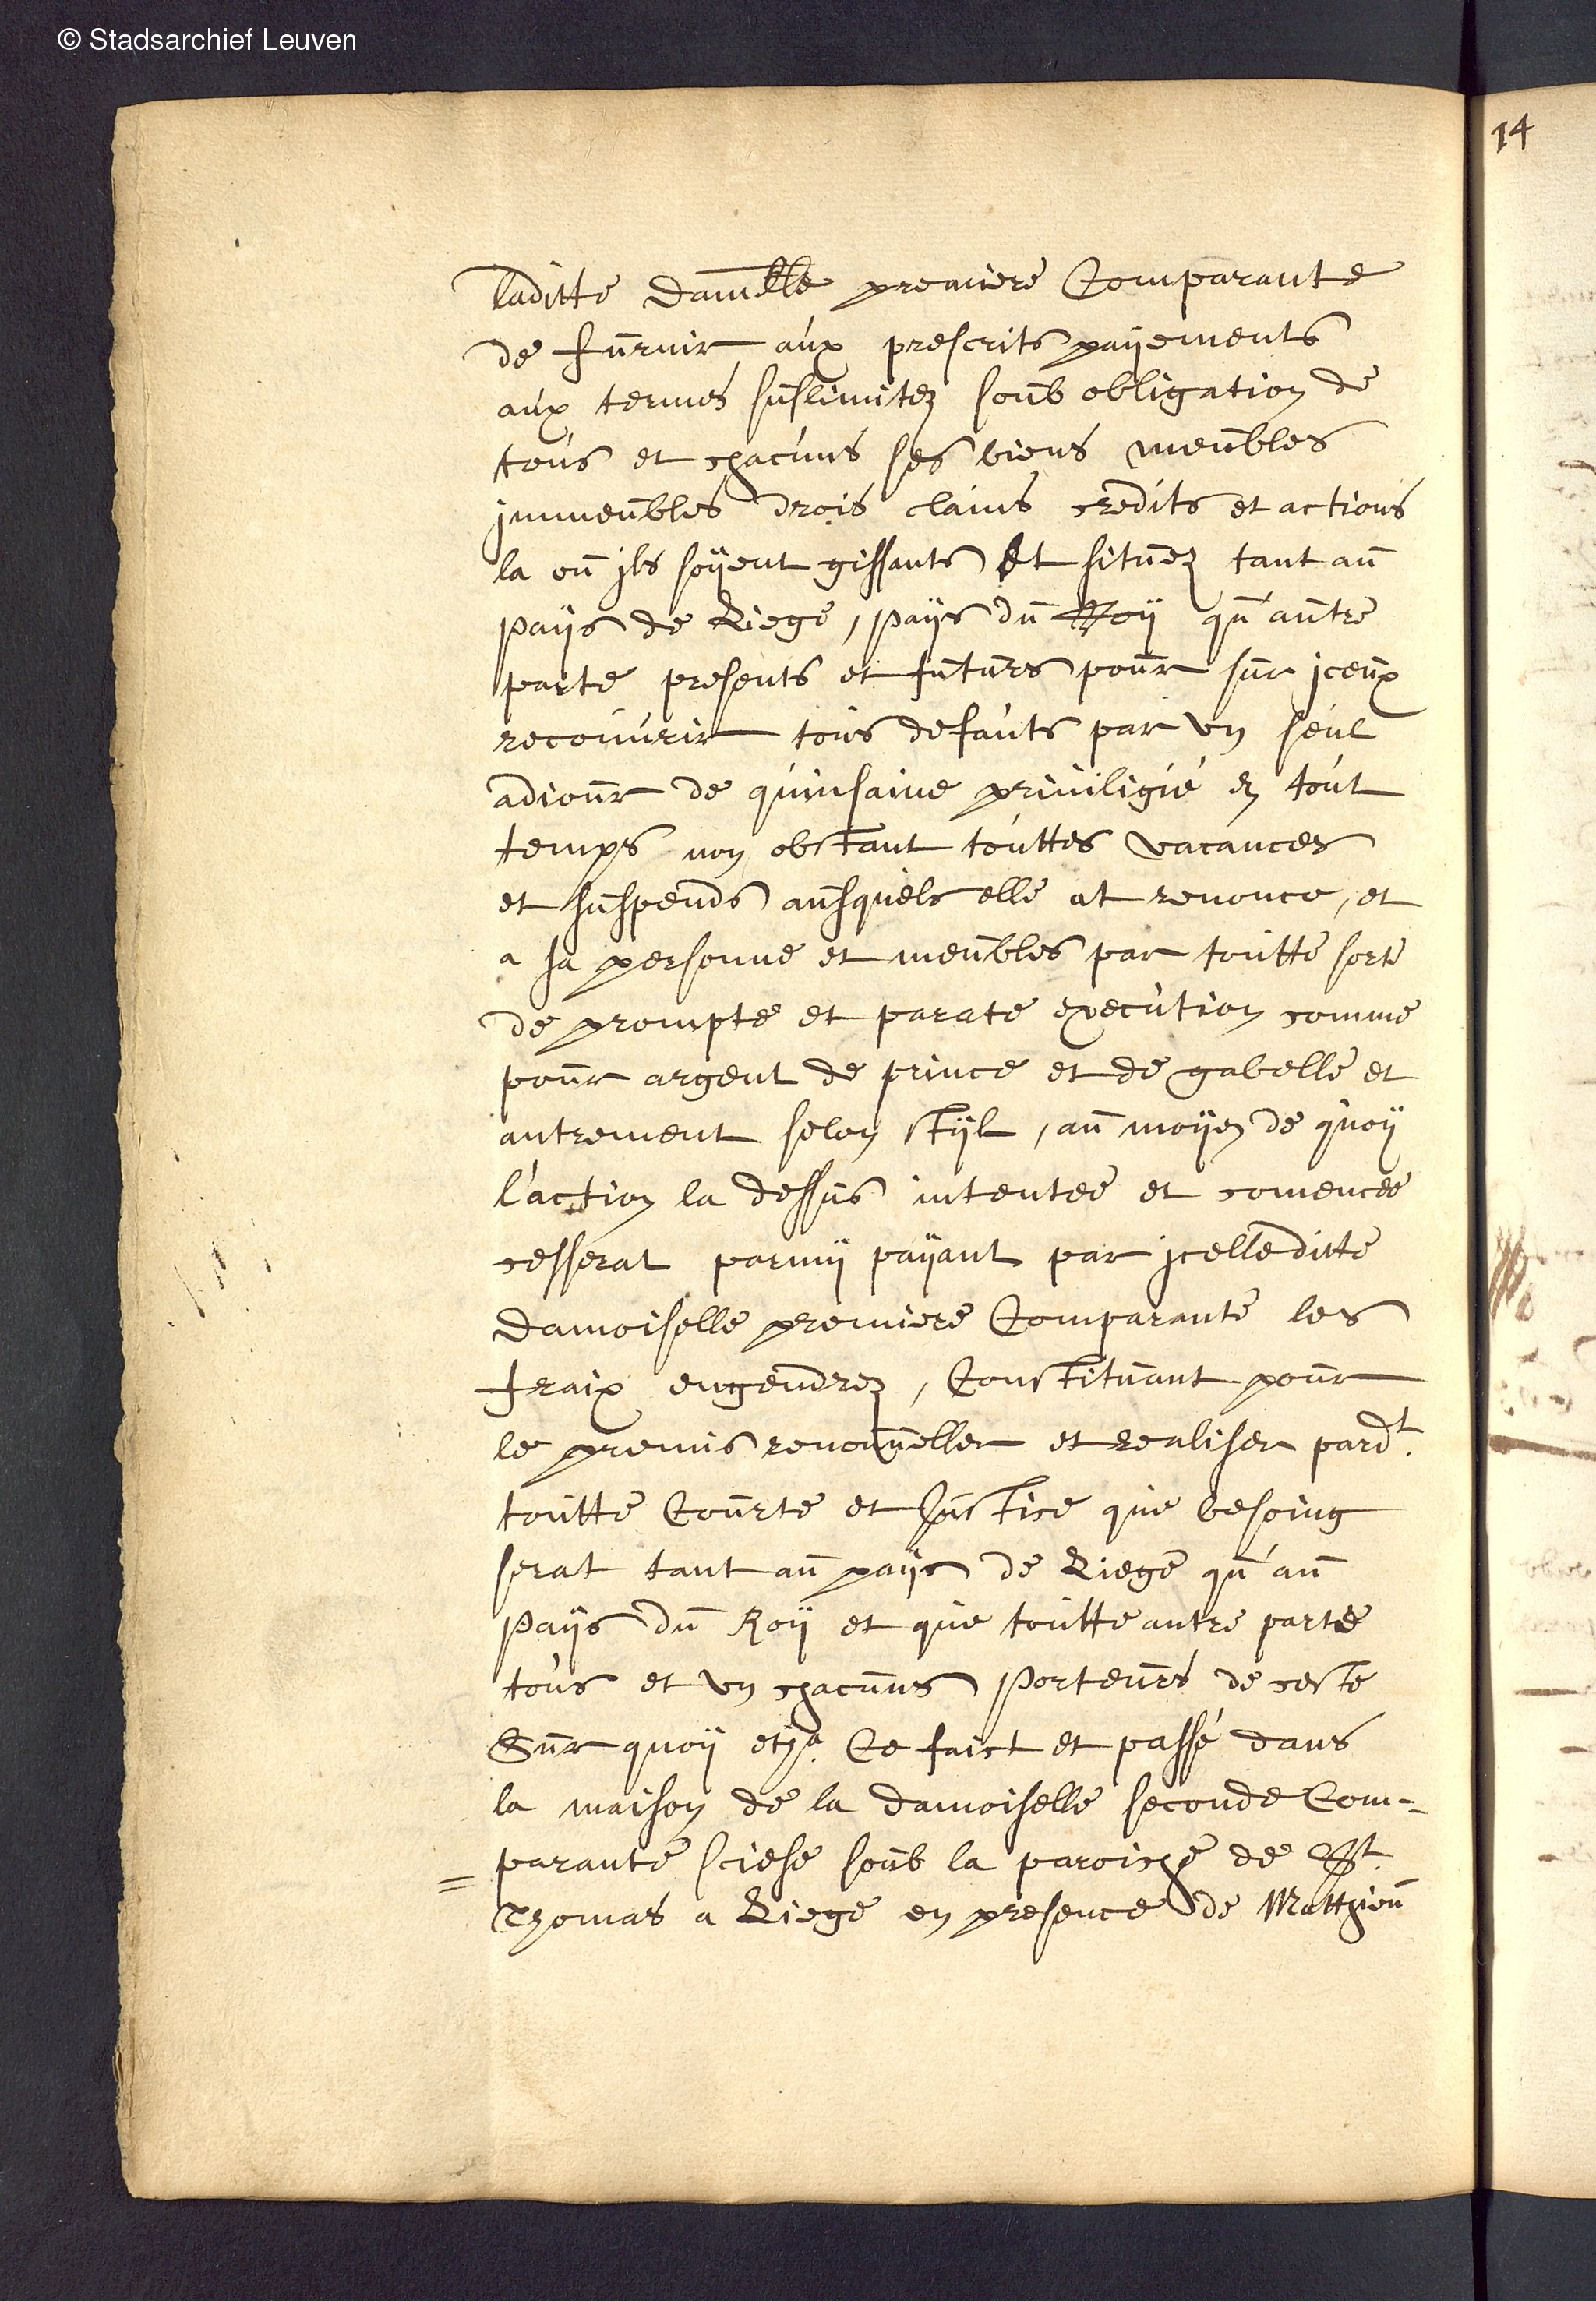 © Stadsarchief Leuven
14
laditte damlle premiere Comparante
de furnir aux prescrits payements
aux termes suslimitez soub obligation de
tous et chacuns ses biens meubles
jmmeubles drois clains credits et actions
la ou jls soÿent gissants et situez tant au
paÿs de Liege, paÿs du Roÿ qu'autre
parte presents et futurs pour sur jceux
recouvrir tous defauts par vn seul
adiour de quinsaine priviligié en tout
temps non obstant touttes vacances
et suspends ausquels elle at renonce, et
a sa personne et meubles par toutte sorte
de prompte et parate execution comme
pour argent de prince et de gabelle et
autrement selon stÿl, au moÿen de quoÿ
l'action la dessus intentee et comencee
cesserat parmÿ paÿant par jcelle ditte
damoiselle premiere Comparante les
fraix engendrez, Constituant pour
le premis renouveller et realiser pardt.
toutte Courte et Justice que besoing
serat tant au paÿs de Liege qu'au
Paÿs du Roÿ et que toutte autre parte
tous et vn chacuns Porteurs de ceste
Sur quoÿ etca. Ce faict et passé dans
la maison de la damoiselle seconde Com-
parante sciese soub la paroisse de St.
Thomas a Liege en presence de Matthieu